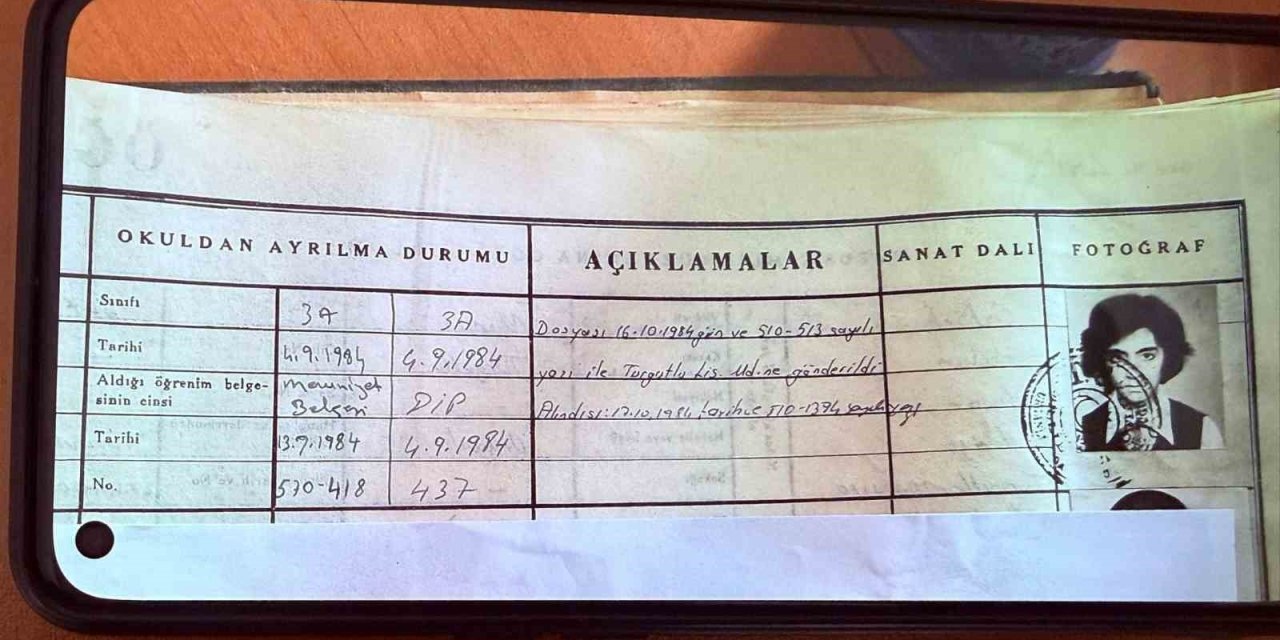 OKULDAN AYRILMA DURUMU AÇIKLAMALAR SANAT DALI FOTOĞRAF
Sınıfı 3A 3A
Dosyası 16.10.1984 gün ve 510-513 sayılı
Tarihi 4.9.1984 4.9.1984
yazı ile Turgutlu Lis. Md.ne gönderildi
Aldığı öğrenim belge-
sinin cinsi
Mezuniyet
Belgesi
DİP
17.10.1984 510-1374
Tarihi 13.9.1984 4.9.1984
No. 570-418 437